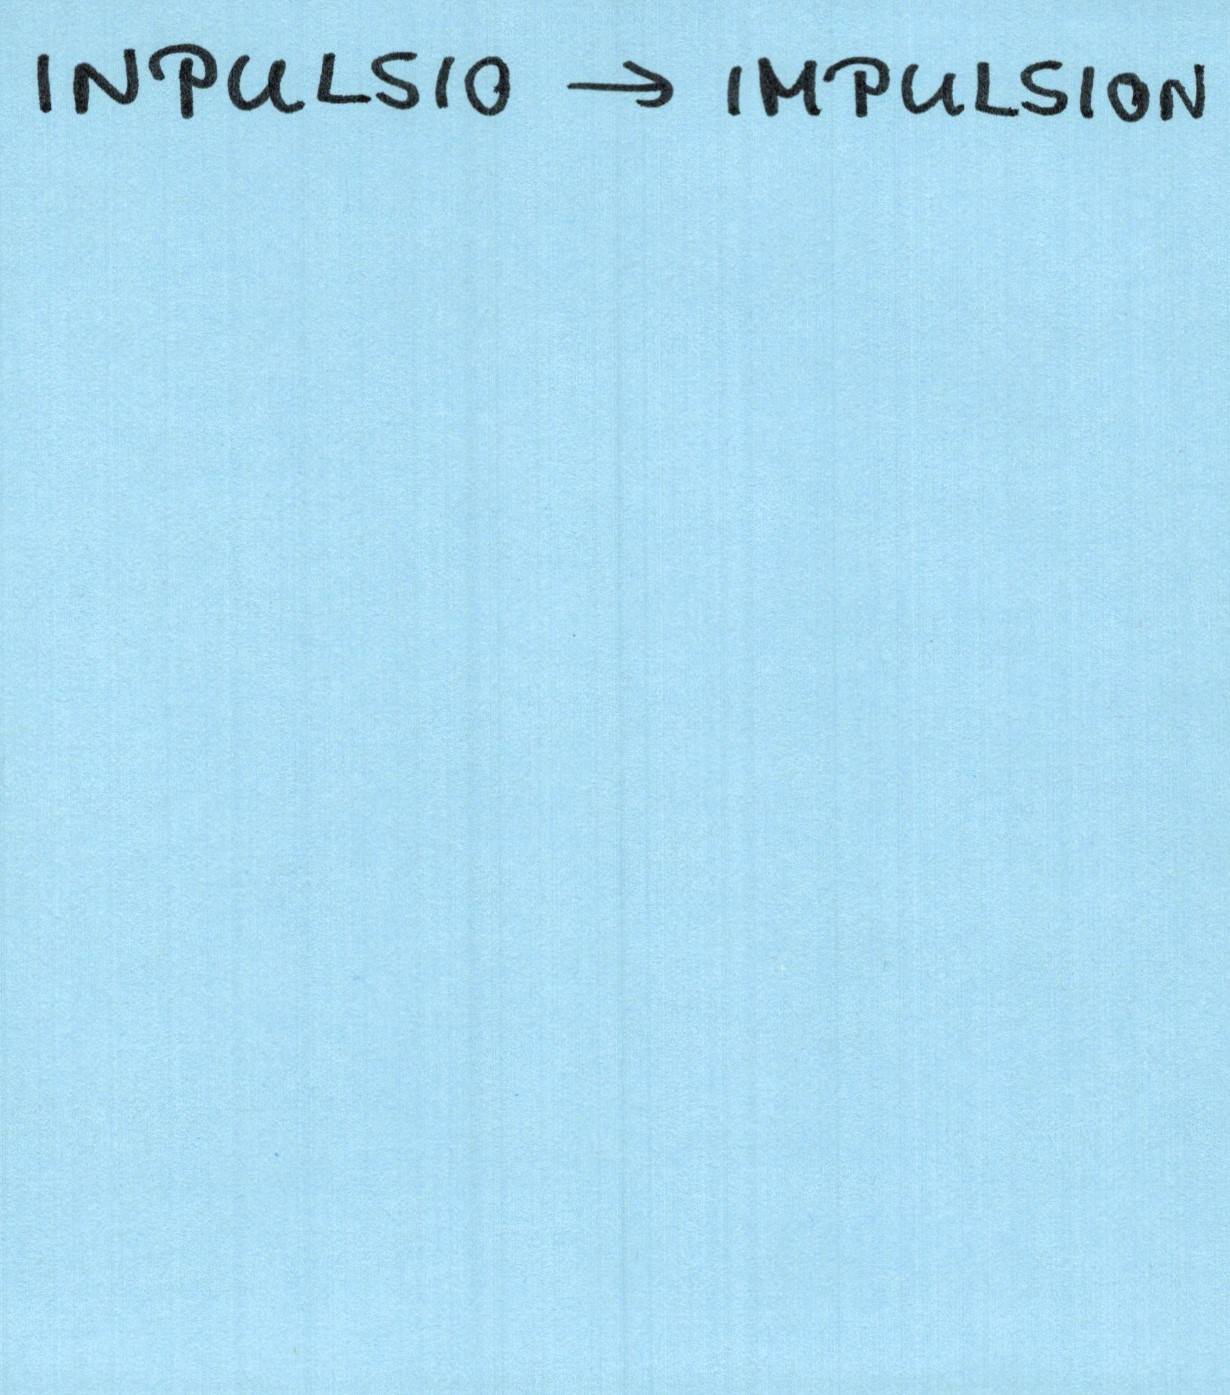 INPULSIO → IMPULSION